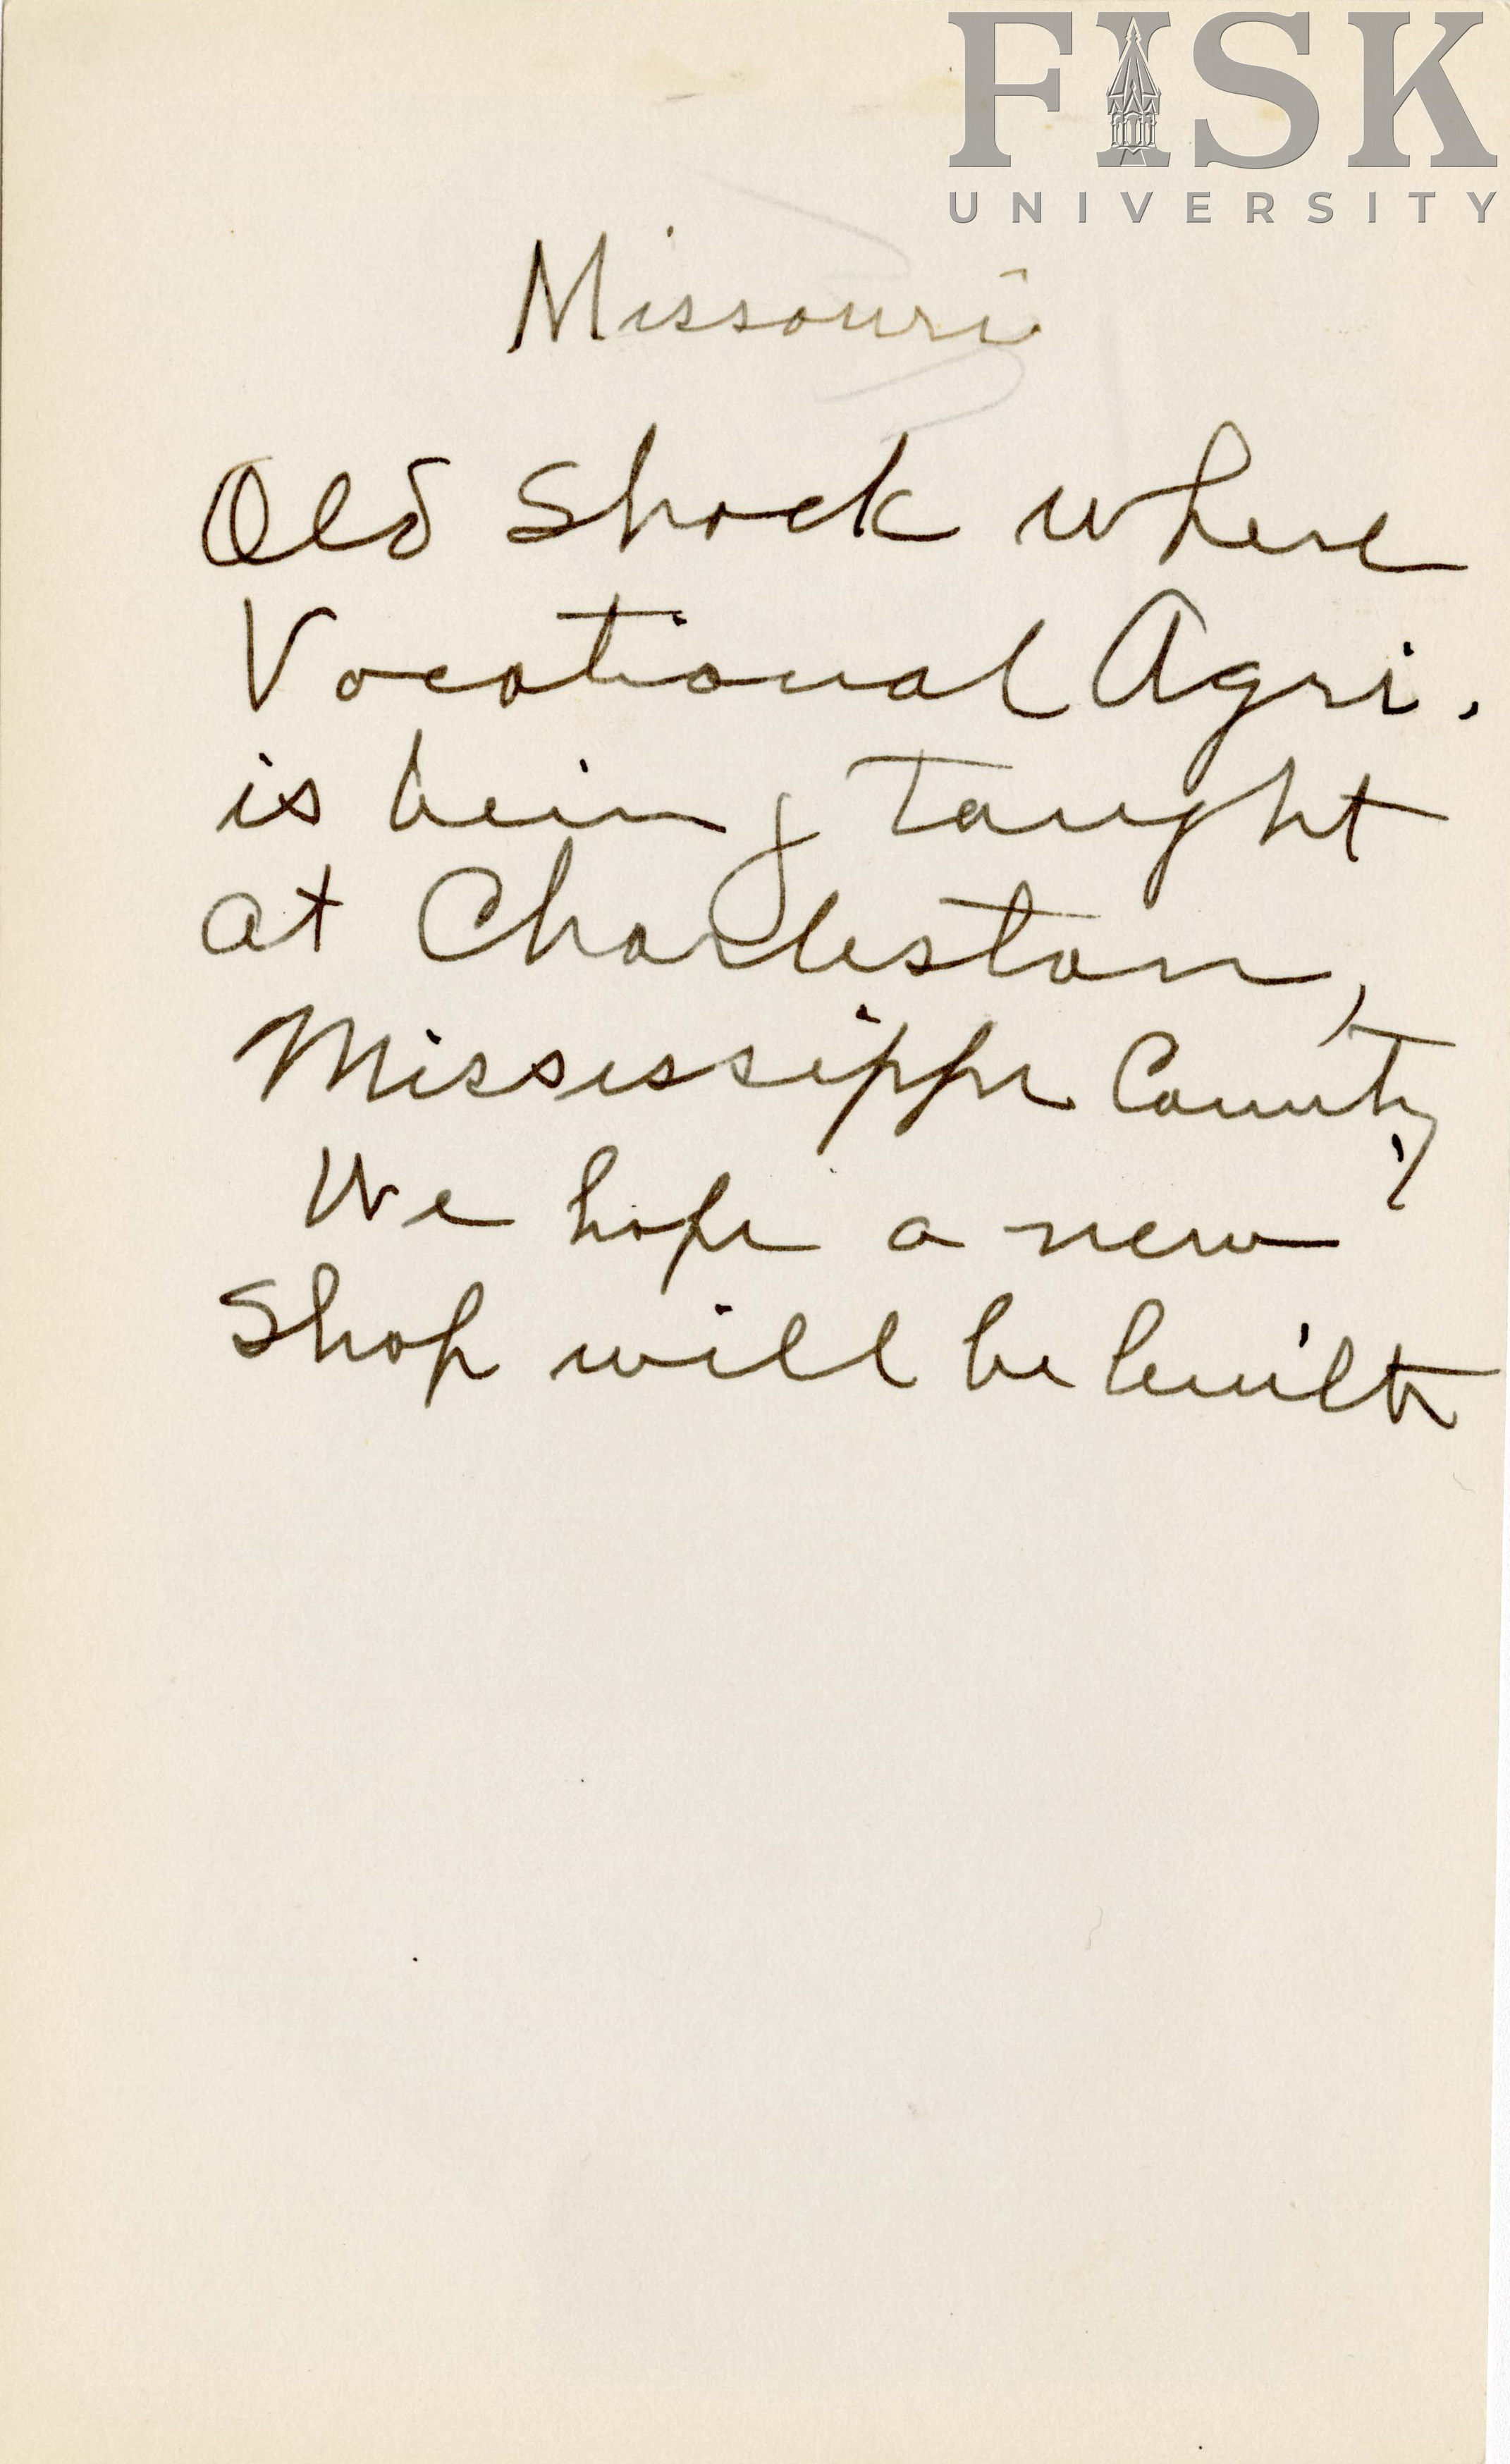 FISK
UNIVERSITY
Missouri
Old Shack where
Vocational Agri.
is being taught
at Charleston,
Mississippi County,
We hope a new
Shop will be built